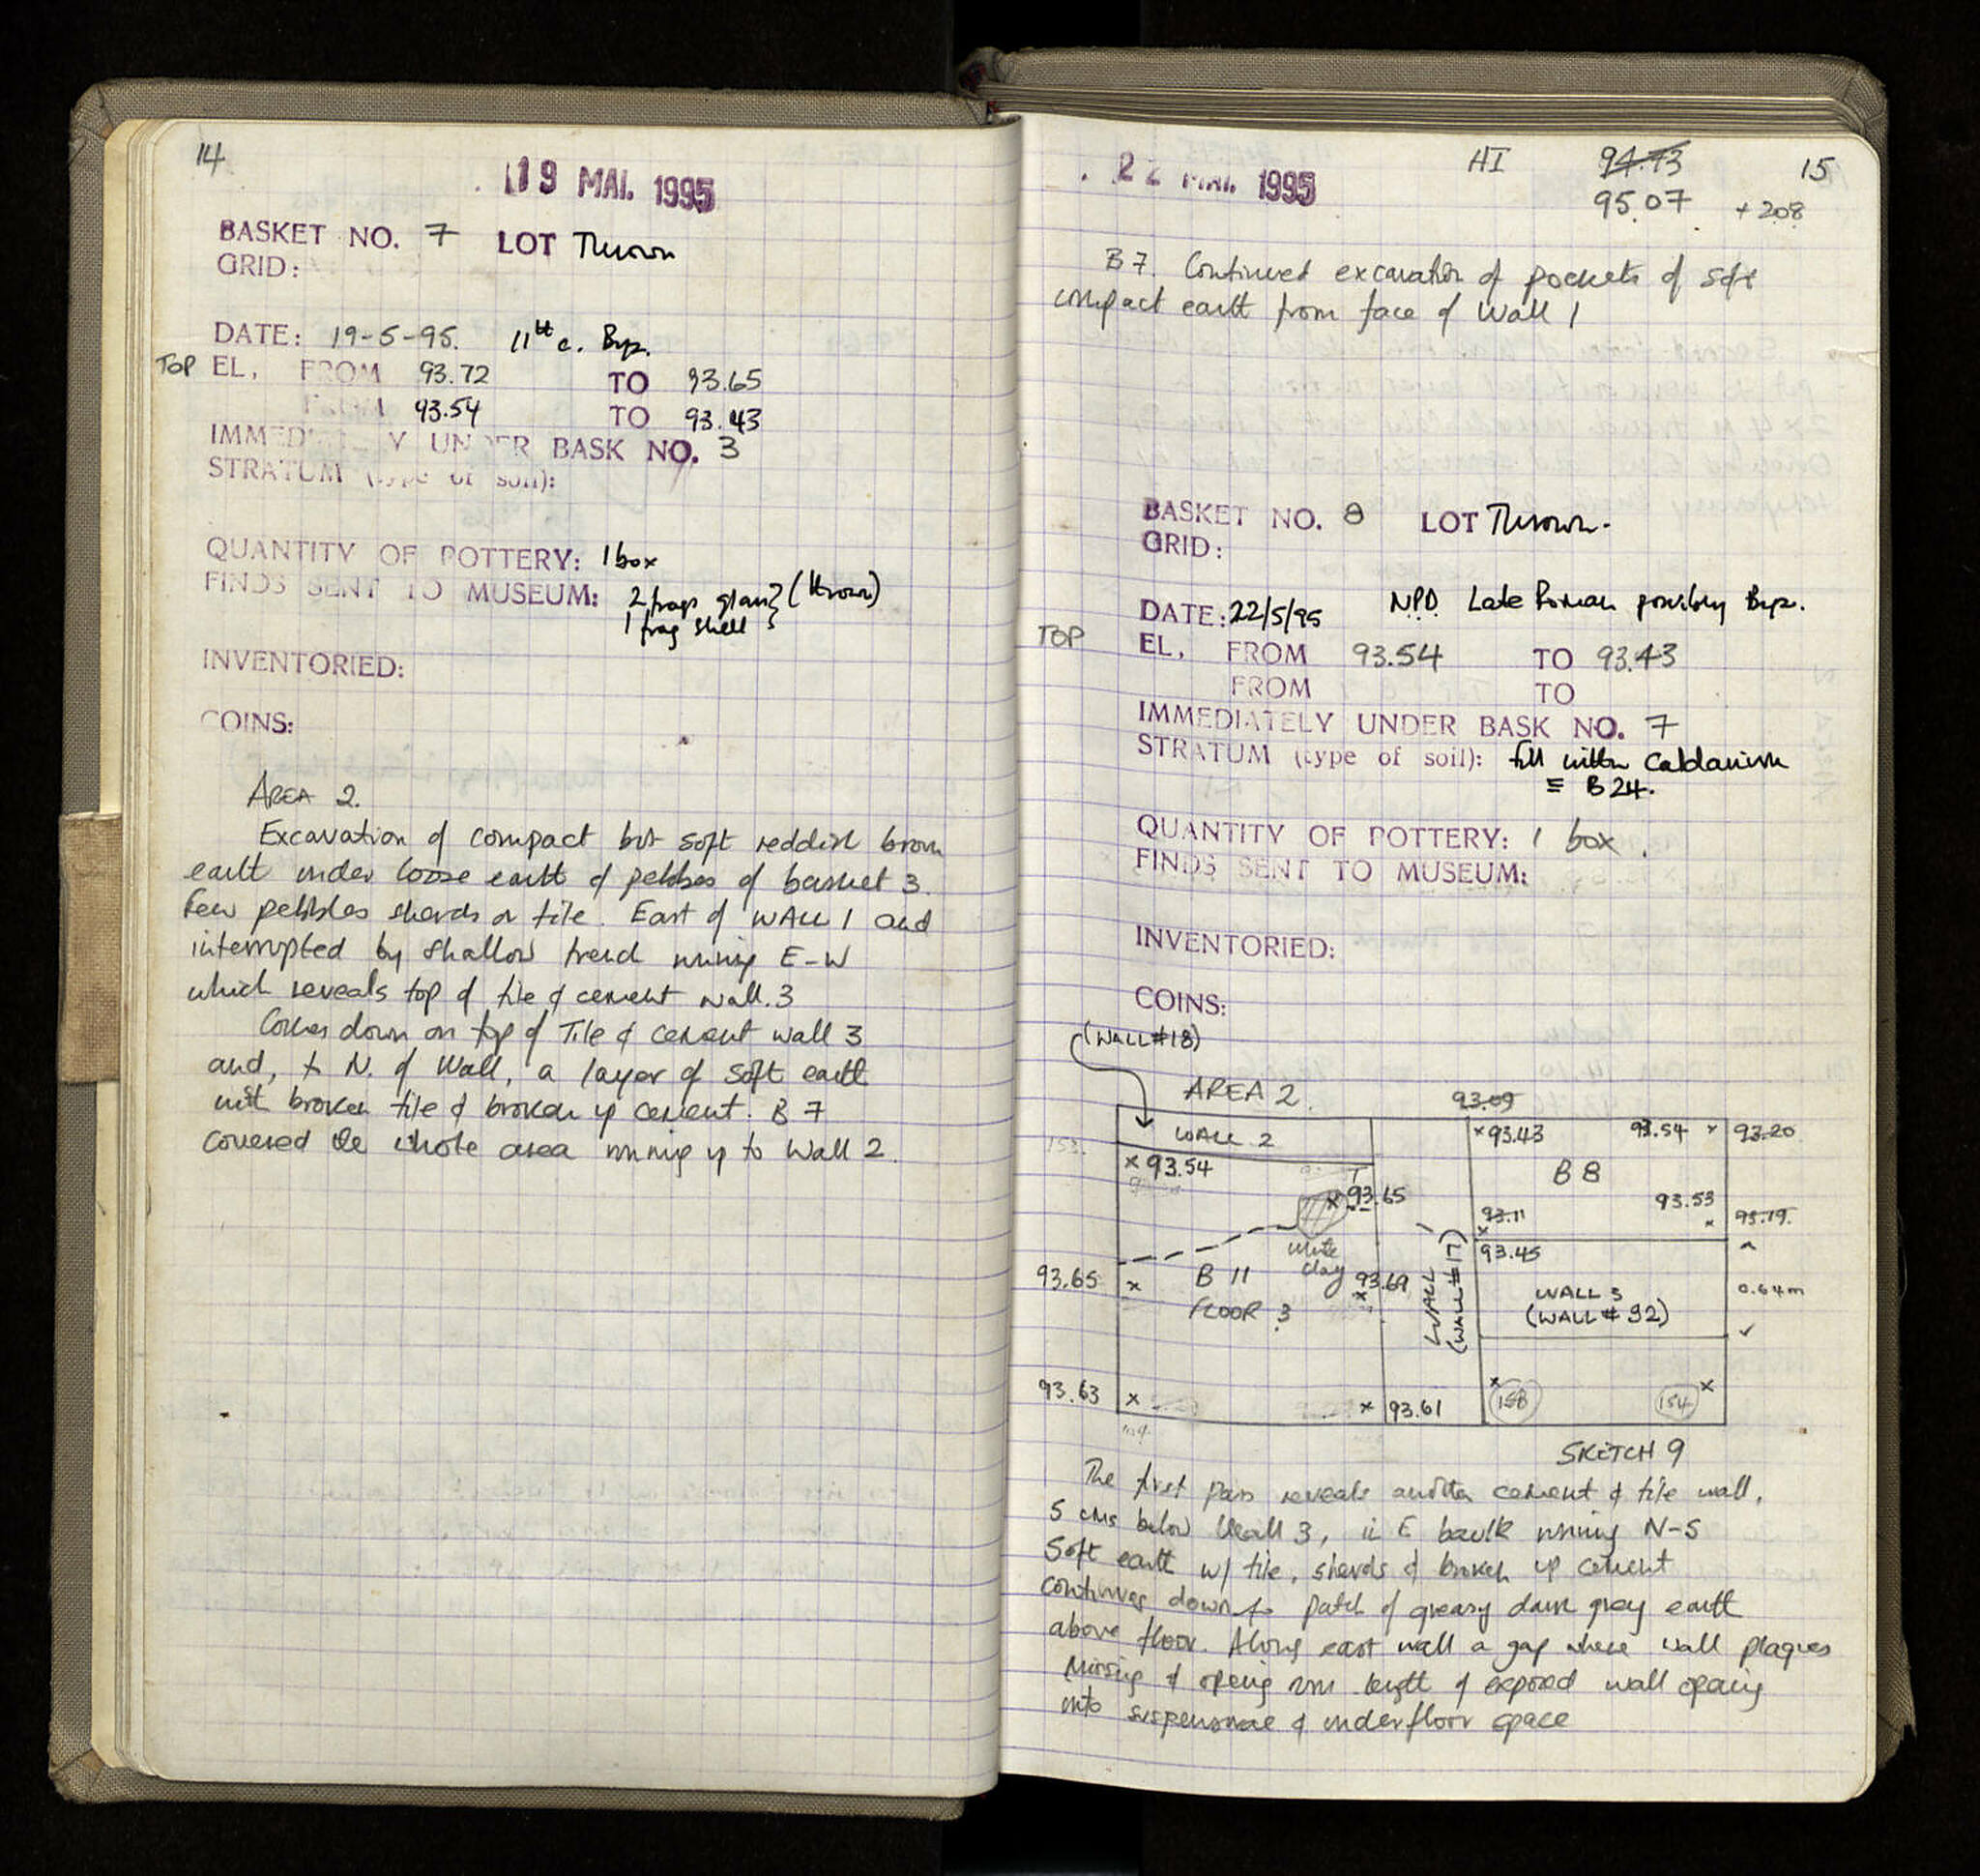 14
19 MAI. 1995
BASKET NO. 7 LOT Thrown
GRID:
DATE: 19-5-95. 11th c. Byz.
TOP EL, FROM 93.72 TO 93.65
FROM 93.54 TO 93.43
IMMEDIATELY UNDER BASK NO. 3
STRATUM (type of soil):
QUANTITY OF POTTERY: 1 box
FINDS SENT TO MUSEUM: 2 frags glass } (thrown)
1 frag shell
INVENTORIED:
COINS:
AREA 2.
Excavation of compact but soft reddish brown
earth under loose earth & pebbles of basket 3.
few pebbles sherds or tile. East of WALL 1 and
interrupted by shallow trend running E-W
which reveals top of tile & cement wall. 3
Comes down on top of Tile & cement wall 3
and, to N. of Wall, a layer of soft earth
with broken tile & broken up cement. B 7
covered the whole area running up to Wall 2.
22 MAI. 1995 HI 94.73 15
95.07 +208
B 7. Continued excavation of pockets of soft
compact earth from face of Wall 1
BASKET NO. 8 LOT Thrown.
GRID:
DATE: 22/5/95 NPD. Late Roman possibly Byz.
TOP EL, FROM 93.54 TO 93.43
FROM TO
IMMEDIATELY UNDER BASK NO. 7
STRATUM (type of soil): fill within Caldarium
= B 24.
QUANTITY OF POTTERY: 1 box.
FINDS SENT TO MUSEUM:
INVENTORIED:
COINS:
(WALL #18)
AREA 2. 93.09
WALL 2 93.43 93.54 93.20
93.54 B 8
93.65 93.53
93.11 93.19
white clay 93.45
93.65 B 11 93.69 WALL 1 (WALL #17) WALL 3 0.64m
FLOOR 3 (WALL # 32)
93.63 93.61 158 154
SKETCH 9
The first pass reveals another cement & tile wall,
5 cms below Wall 3, in E baulk running N-S
Soft earth w/ tile, sherds & broken up cement
continues down to patch of greasy dark grey earth
above floor. Along east wall a gap where wall plaques
missing & opening runs length of exposed wall opening
into suspensurae & underfloor space